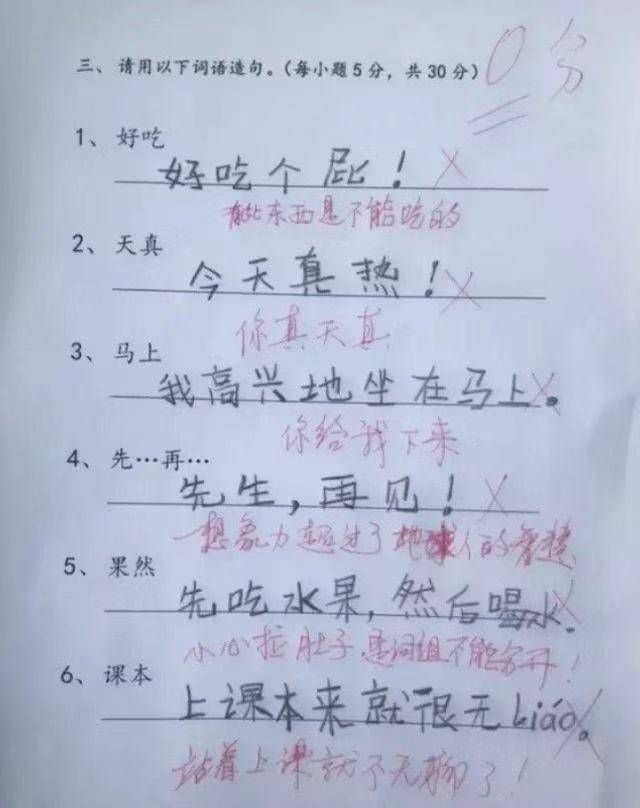 三、请用以下词语造句。（每小题5分，共30分） 0分
1、好吃
好吃个屁！
有些东西是不能吃的
2、天真
今天真热！
你真天真
3、马上
我高兴地坐在马上。
你给我下来
4、先…再…
先生，再见！
想象力超过了地球人的智慧
5、果然
先吃水果，然后喝水！
小心拉肚子 是词组不能分开！
6、课本
上课本来就很无liáo。
站着上课就不无聊了！